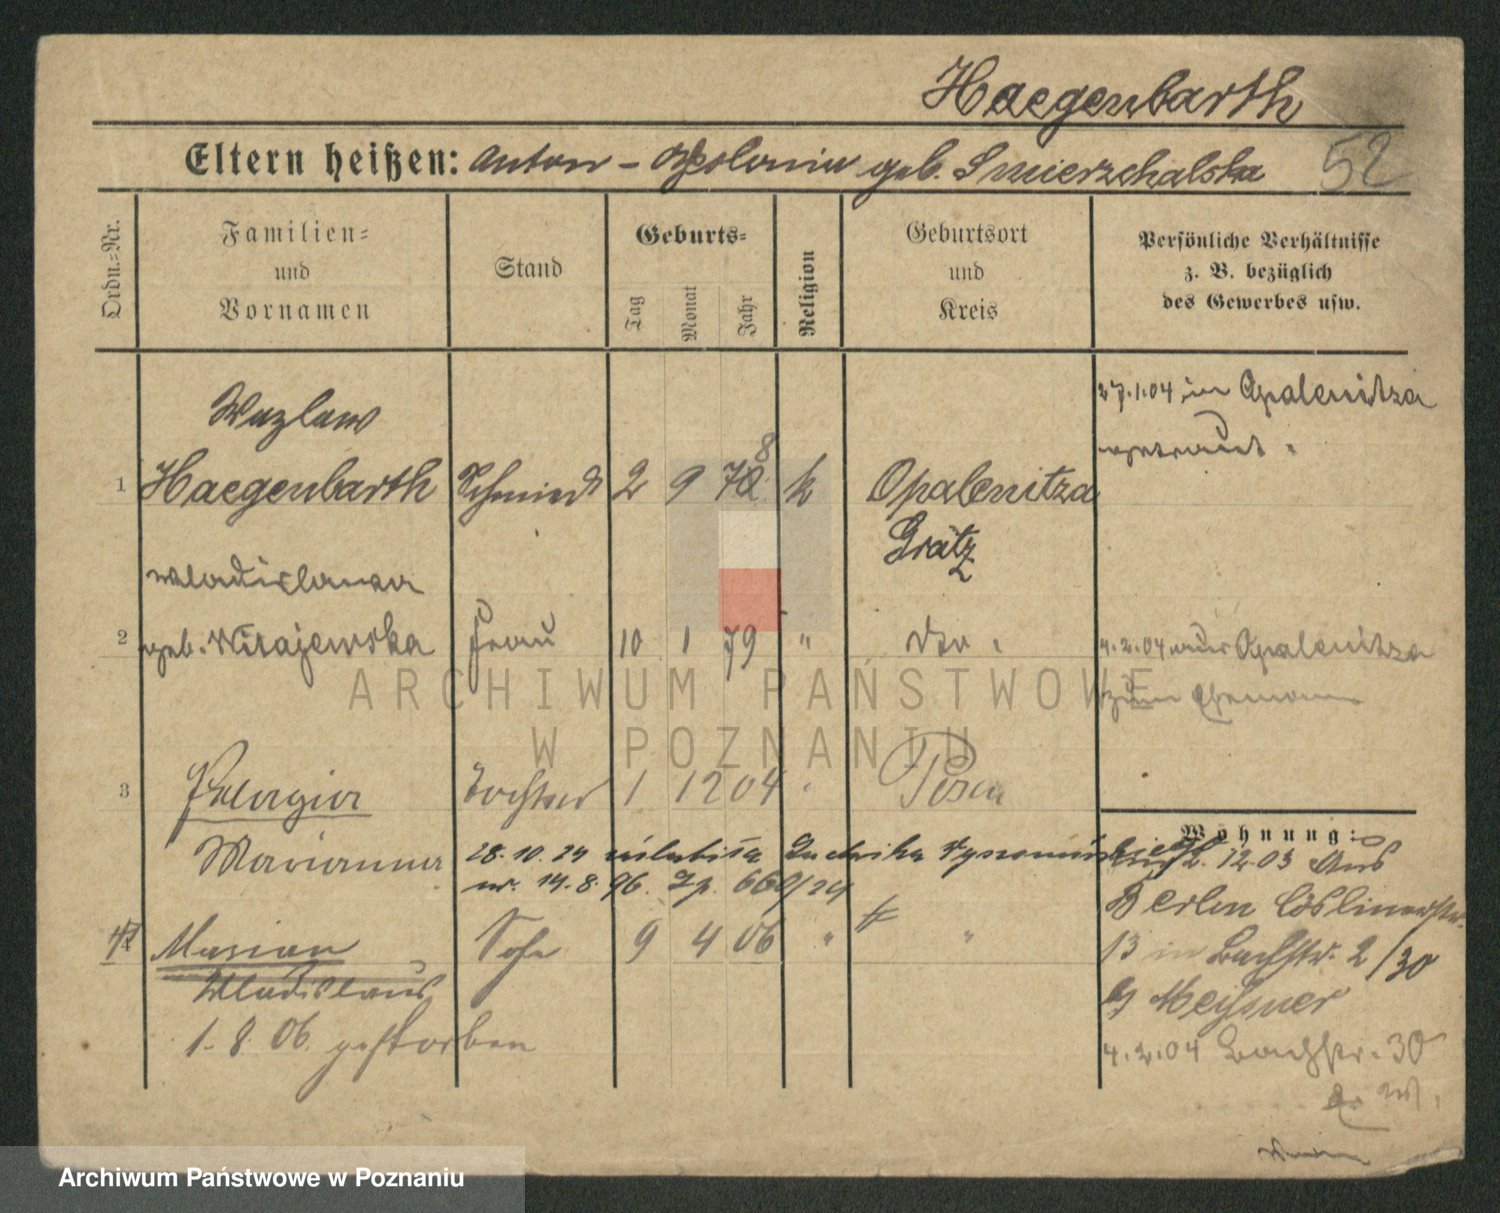 Haegenbarth
Eltern heißen: Anton - Apolonia geb. Smierzchalska
52
Ordn.=Nr.
Familien=
und
Vornamen
Stand
Geburts=
Tag
Monat
Jahr
Religion
Geburtsort
und
Kreis
Persönliche Verhältnisse
z. B. bezüglich
des Gewerbes usw.
27.1.04 in Opalenitza
getraut.
Wazlaw
8
1 Haegenbarth Schmied 2 9 78 k Opalenitza
Grätz
Wladislawa
2 geb. Witajewska Frau 10 1 79 " 4.2.04 aus Opalenitza
zum Ehemann
3 Pelagia Tochter 1 12 04 Posen
Marianna
28.10.24 Ludwika
ur. 14.8.96. 660/24
4 Marian Sohn 9 4 06 " "
Wladislaus
1.8.06. gestorben
Wohnung:
2.12.03 Aus
Berlin Cöslinerstr.
13 in Bachstr. 2/30
b/ Meißner
4.2.04 Bachstr. 30
ARCHIWUM PAŃSTWOWE
W POZNANIU
Archiwum Państwowe w Poznaniu